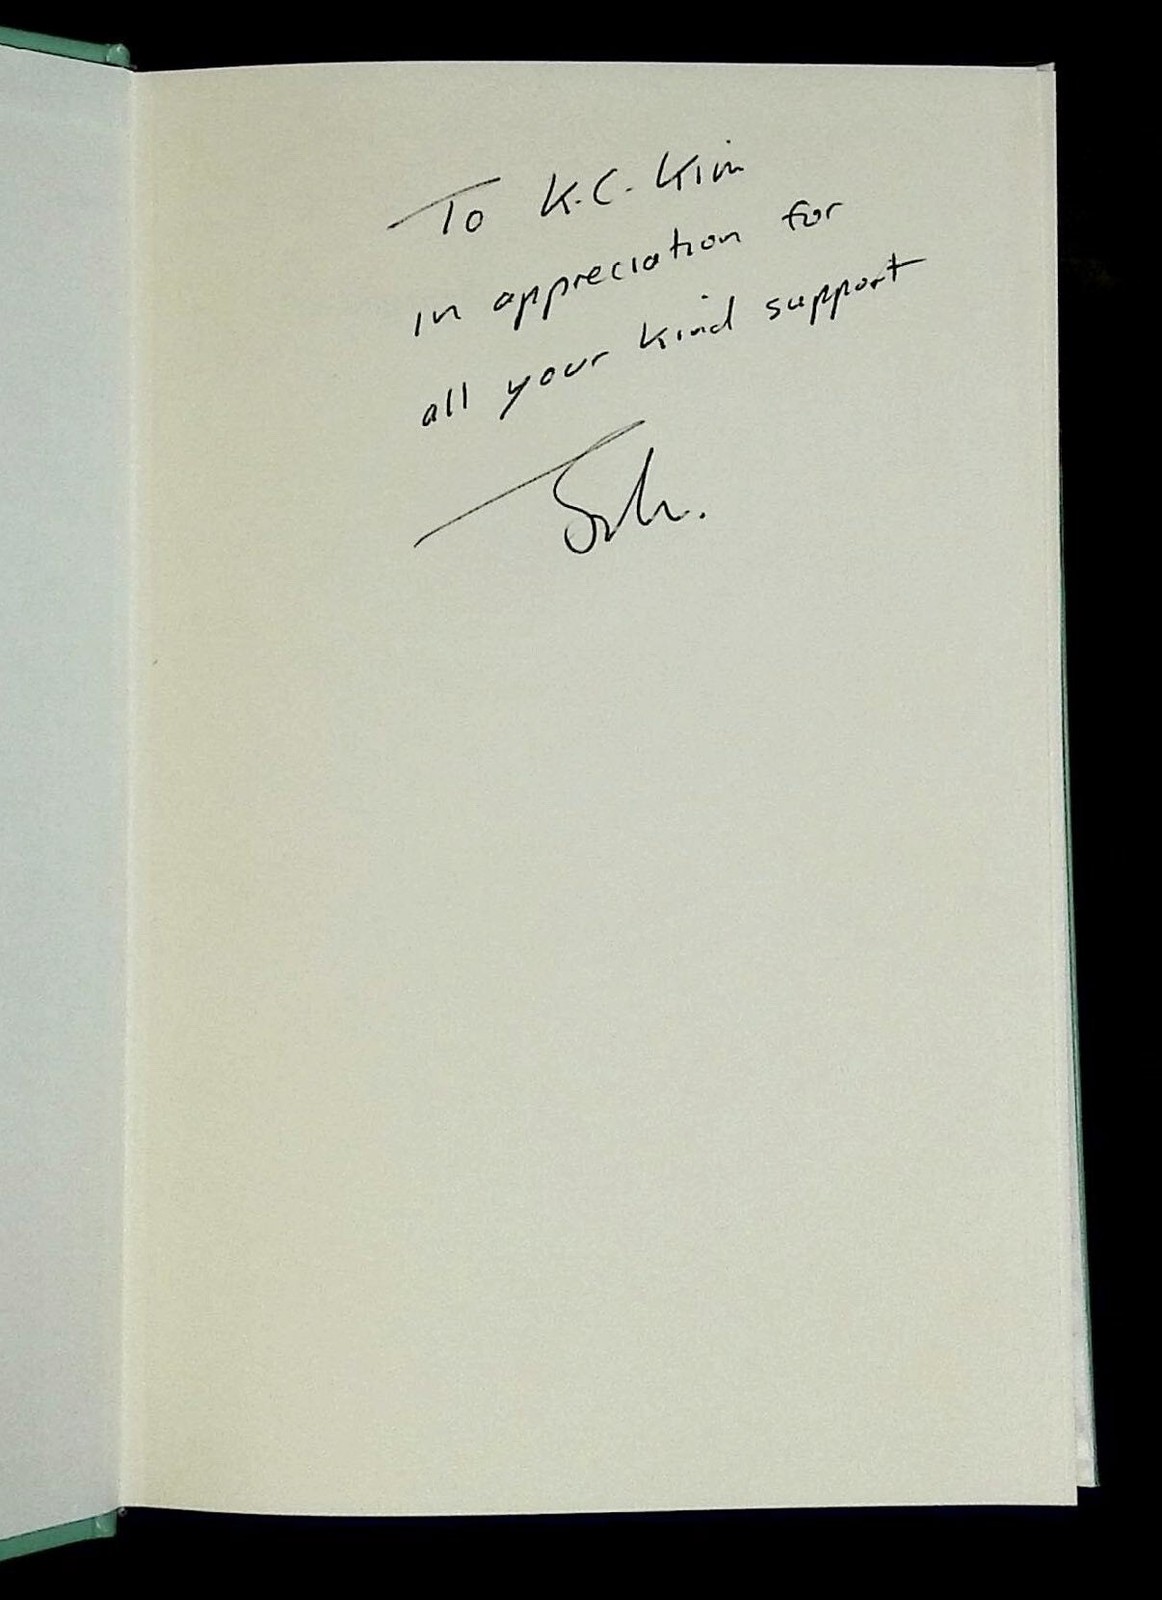 To K.C. Kim
in appreciation for
all your kind support